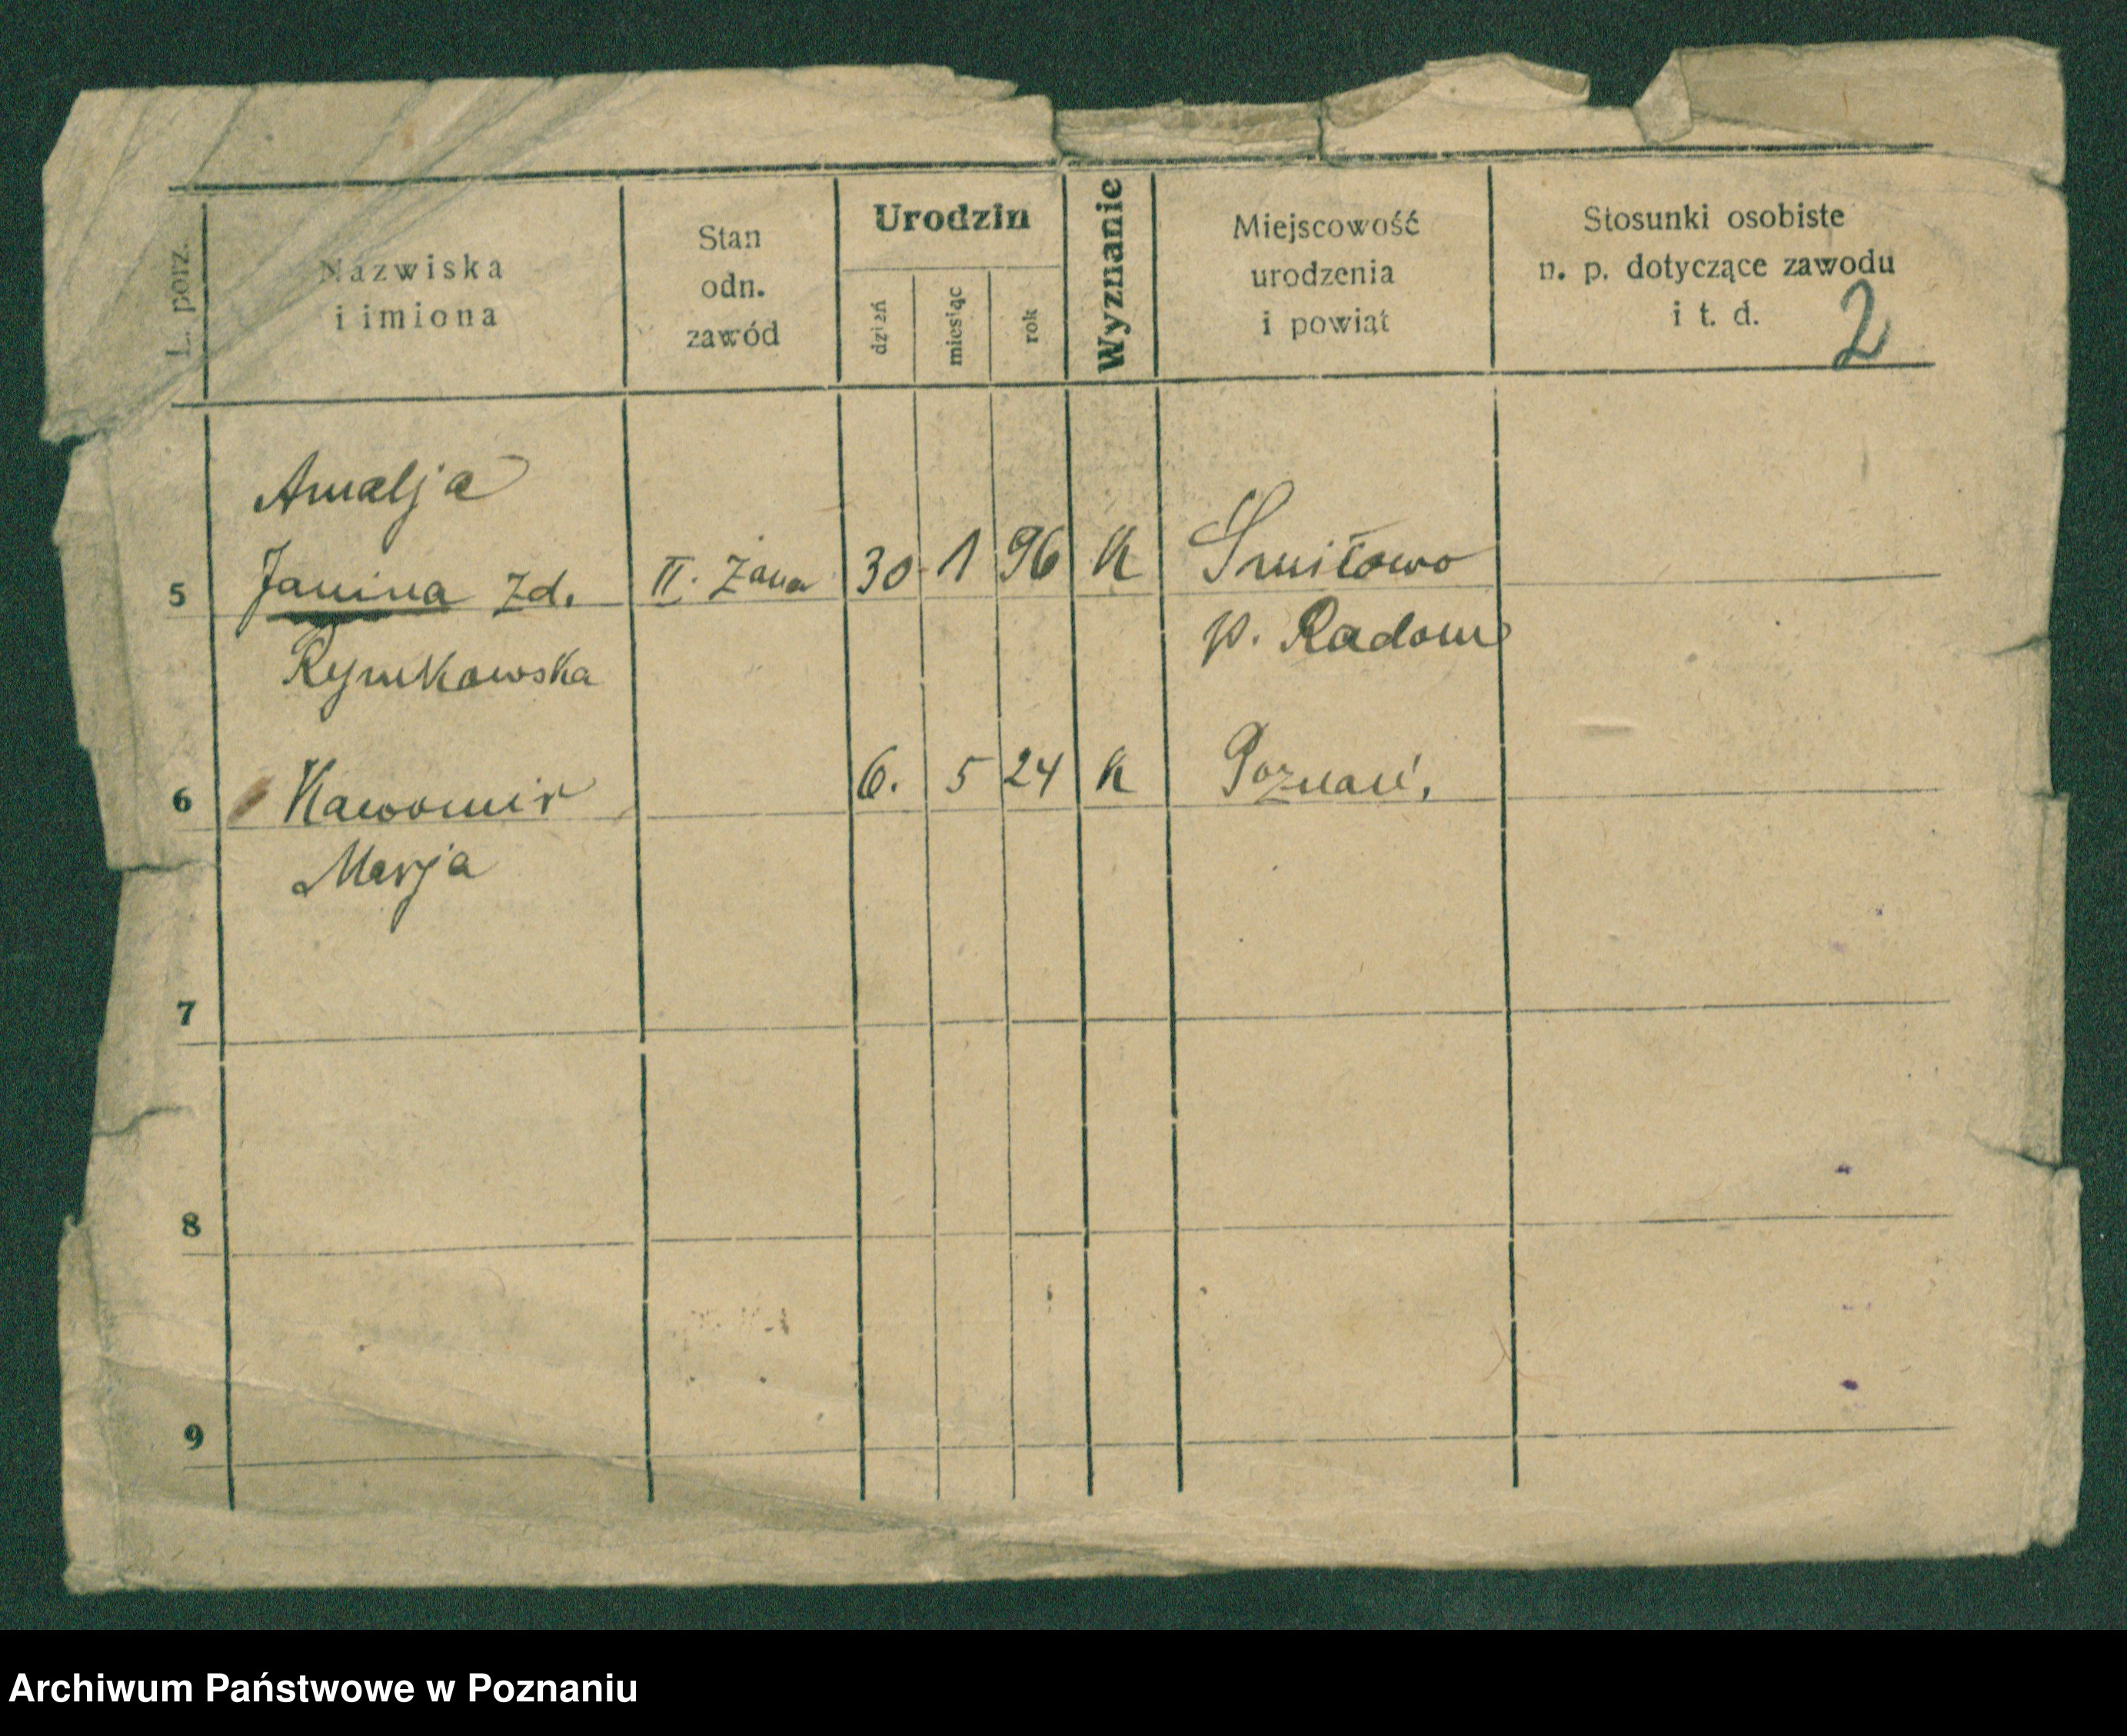 L. porz.
Nazwiska
i imiona
Stan
odn.
zawód
Urodzin
dzień
miesiąc
rok
Wyznanie
Miejscowość
urodzenia
i powiat
Stosunki osobiste
n. p. dotyczące zawodu
i t. d.
2
Amalja
5 Janina zd. II. Żona 30 1 96 K Smiłowo
Rymkowska p. Radom
6 6. 5 24 K Poznań,
Marja
7
8
9
Archiwum Państwowe w Poznaniu